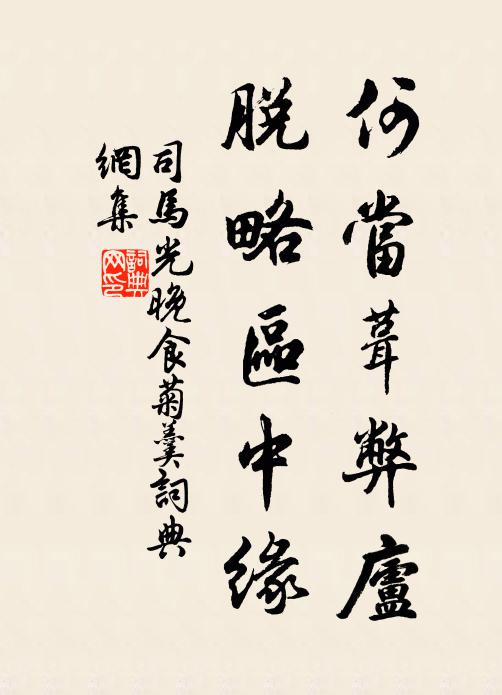 何當葺弊廬
脱略區中緣
司馬光晚食菊羹詞典
網集
詞典
网印